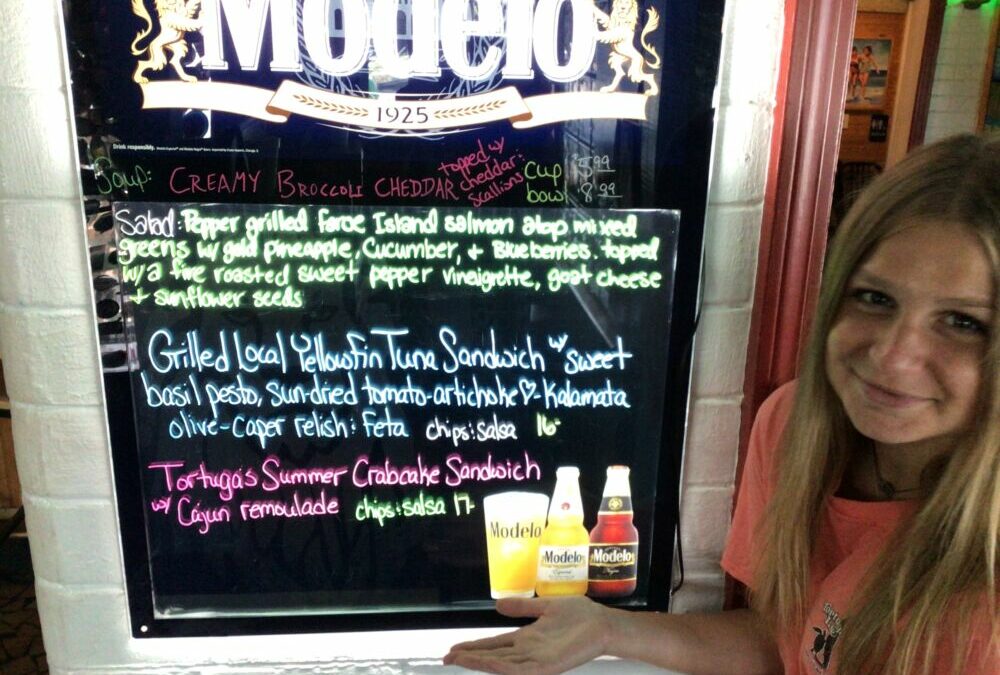 Modelo
1925
Drink responsibly.
Soup: CREAMY BROCCOLI CHEDDAR topped w/ cheddar: scallions
Cup 5.99
bowl 8.99
Salad: Pepper grilled faroe Island salmon atop mixed
greens w/ gold pineapple, Cucumber, + Blueberries. topped
w/ a fire roasted sweet pepper vinaigrette, goat cheese
+ sunflower seeds
Grilled Local Yellowfin Tuna Sandwich w/ sweet
basil pesto, sun-dried tomato-artichoke♡-Kalamata
olive-caper relish: feta chips: salsa 16-
Tortuga's Summer Crabcake Sandwich
w/ Cajun remoulade chips: salsa 17-
Modelo
Modelo
Especial
Modelo
Negra